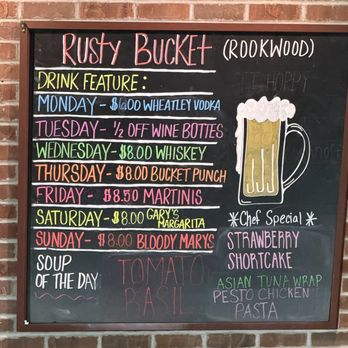 RUSTY BUCKET (ROOKWOOD)
DRINK FEATURE:
MONDAY - $6.00 WHEATLEY VODKA
TUESDAY - ½ OFF WINE BOTTLES
WEDNESDAY - $8.00 WHISKEY
THURSDAY - $8.00 BUCKET PUNCH
FRIDAY - $8.50 MARTINIS
SATURDAY - $8.00 GARY'S
MARGARITA
SUNDAY - $8.00 BLOODY MARYS
SOUP
OF THE DAY
TOMATO
BASIL
HOPPY
*Chef Special*
STRAWBERRY
SHORTCAKE
ASIAN TUNA WRAP
PESTO CHICKEN
PASTA